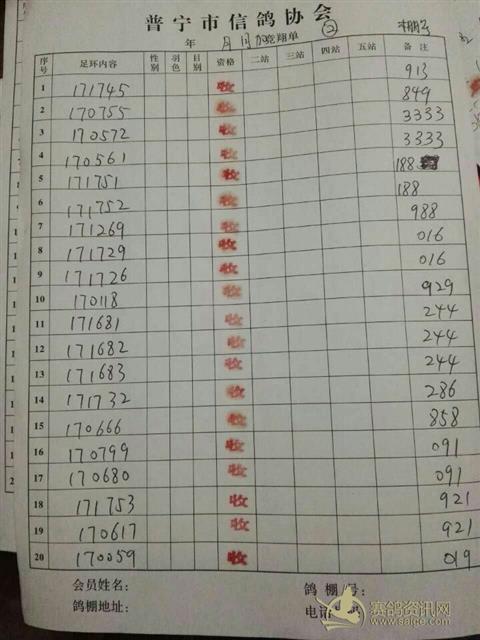 普宁市信鸽协会
年 月 日 翔单 ② 棚号
序号 足环内容 性别 羽色 目别 资格 二站 三站 四站 五站 备注
1 171745 收 913
2 170755 收 849
3 170572 收 3333
4 170561 收 3333
5 171751 收 188
6 171752 收 188
7 171269 收 988
8 171729 收 016
9 171726 收 016
10 170118 收 929
11 171681 收 244
12 171682 收 244
13 171683 收 244
14 171732 收 286
15 170666 收 858
16 170799 收 091
17 170680 收 091
18 171753 收 921
19 170617 收 921
20 170059 收 019
会员姓名： 鸽棚号：
鸽棚地址： 电话
赛鸽资讯网
www.saige.com